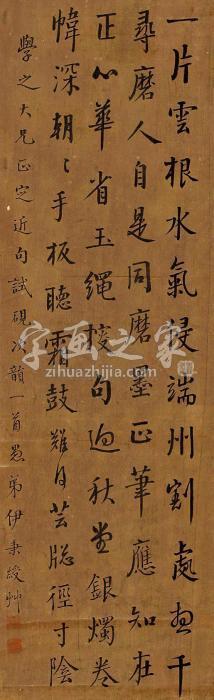 一片雲根水氣浸端州割處直千
尋磨人自是同磨墨正筆應知在
正心華省玉繩挍句迥秋堂銀燭卷
幃深朝〻手板聽霜鼓難得芸牕徑寸陰
學之大兄正定近句試硯次韻一首愚弟伊秉綬艸
字画之家
zihuazhijia.com